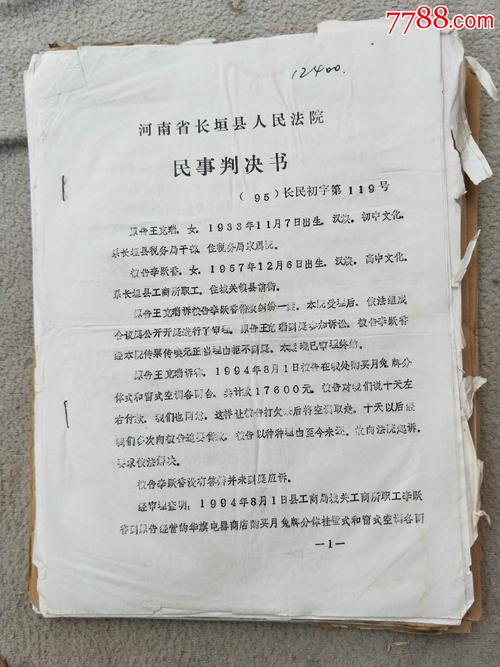 7788.com
12400.
河南省长垣县人民法院
民事判决书
（95）长民初字第119号
原告王克瑞，女，1933年11月7日出生，汉族，初中文化，
系长垣县税务局干部，住税务局家属院。
被告李跃香，女，1957年12月6日出生，汉族，高中文化，
系长垣县工商所职工，住城关镇县前街。
原告王克瑞诉被告李跃香借款纠纷一案，本院受理后，依法组成
合议庭公开开庭进行了审理。原告王克瑞到庭参加诉讼，被告李跃香
经本院传票传唤无正当理由拒不到庭。本案现已审理终结。
原告王克瑞诉称，1994年8月1日被告在我处购买月兔牌分
体式和窗式空调各两台，共计款17600元，被告对我们说十天左
右付款，我们也同意，这样让被告打欠条后将空调取走，十天以后最
我们多次向被告追要借款，被告以种种理由至今未还，故向法院起诉，
要求依法解决。
被告李跃香没有答辩并未到庭应诉。
经审理查明，1994年8月1日县工商局城关工商所职工李跃
香到原告经营的华旗电器商店购买月兔牌分体挂壁式和窗式空调各两
—1—